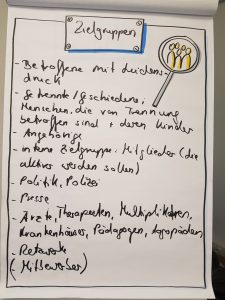 Zielgruppen
- Betroffene mit Leidens-
druck
- getrennte/geschiedene;
Menschen, die von Trennung
betroffen sind + deren Kinder
- Angehörige
- interne Zielgruppe: Mitglieder (die
aktiver werden sollen)
- Politik, Polizei
- Presse
- Ärzte, Therapeuten, Multiplikatoren,
Krankenhäuser, Pädagogen,
- Netzwerk
(- Mitbewerber)